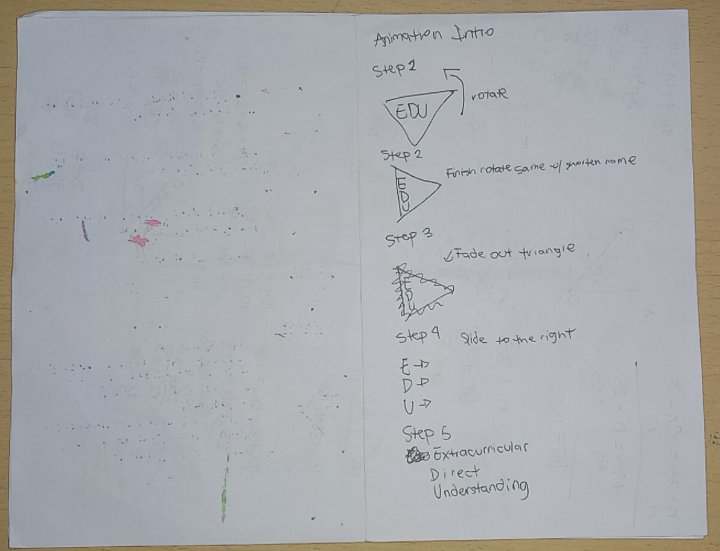 Animation Intro
Step 1
rotate
EDU
Step 2
Finish rotate same w/ shorten name
E
D
U
Step 3
Fade out triangle
E
D
U
Step 4 Slide to the right
E →
D →
U →
Step 5
Extracurricular
Direct
Understanding